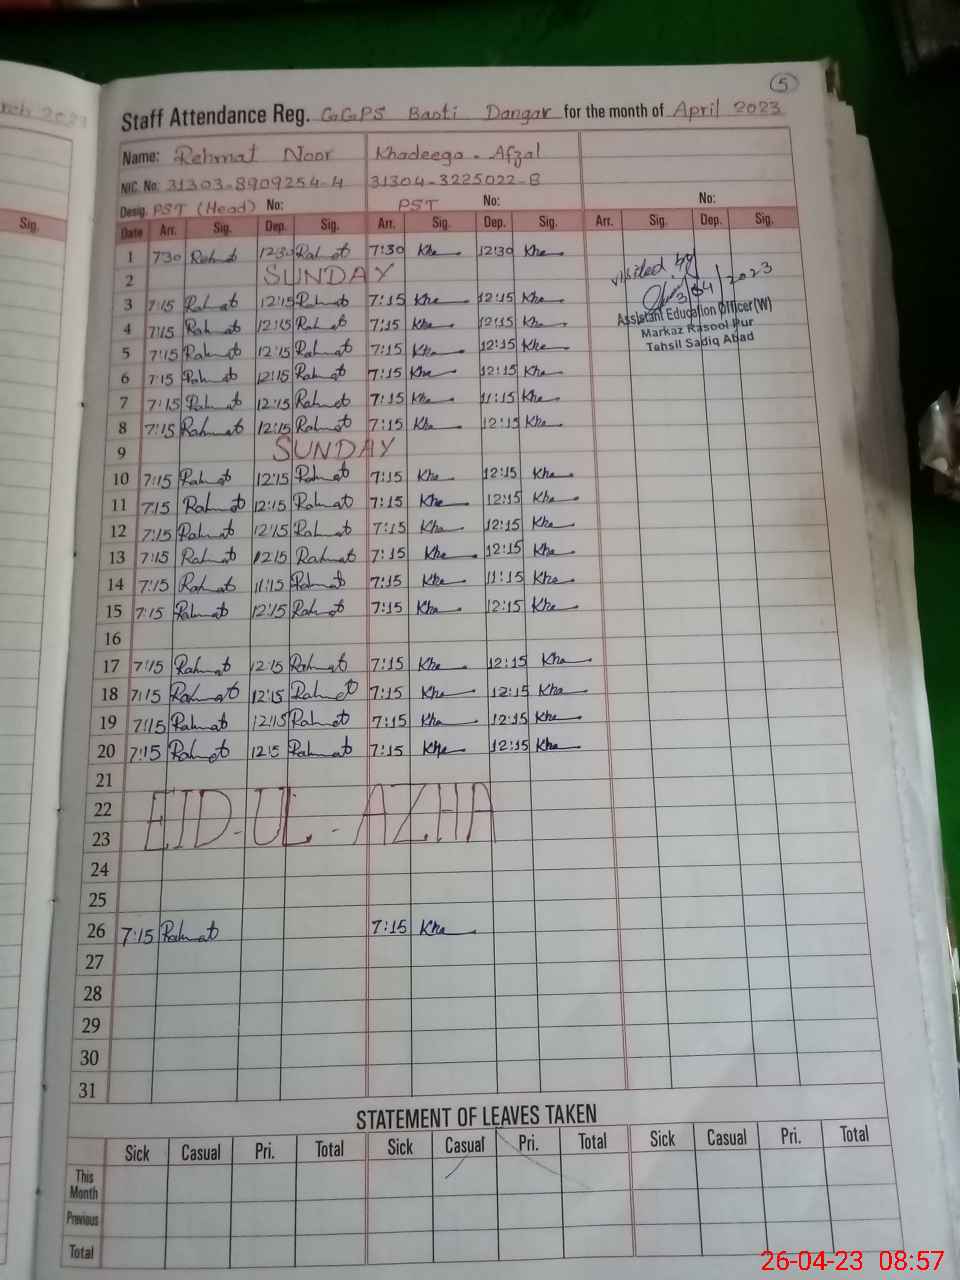 5
rch 2023
Staff Attendance Reg. GGPS Basti Dangar for the month of April 2023
Name: Rehmat Noor Khadeega - Afzal
NIC. No: 31303-8909254-4 31304-3225022-8
Desig. PST (Head) No: PST No: No:
Sig. Date Arr. Sig. Dep. Sig. Arr. Sig. Dep. Sig. Arr. Sig. Dep. Sig.
1 730 Rahmat 1230 Rahmat 7:30 Kha 12:30 Kha
2 SUNDAY
visited by
3/04/2023
Assistant Education Officer(W)
Markaz Rasool Pur
Tehsil Sadiq Abad
3 7:15 Rahmat 12:15 Rahmat 7:15 Kha 12:15 Kha
4 7:15 Rahmat 12:15 Rahmat 7:15 Kha 12:15 Kha
5 7:15 Rahmat 12:15 Rahmat 7:15 Kha 12:15 Kha
6 7:15 Rahmat 12:15 Rahmat 7:15 Kha 12:15 Kha
7 7:15 Rahmat 12:15 Rahmat 7:15 Kha 11:15 Kha
8 7:15 Rahmat 12:15 Rahmat 7:15 Kha 12:15 Kha
9 SUNDAY
10 7:15 Rahmat 12:15 Rahmat 7:15 Kha 12:15 Kha
11 7:15 Rahmat 12:15 Rahmat 7:15 Kha 12:15 Kha
12 7:15 Rahmat 12:15 Rahmat 7:15 Kha 12:15 Kha
13 7:15 Rahmat 1215 Rahmat 7:15 Kha 12:15 Kha
14 7:15 Rahmat 11:15 Rahmat 7:15 Kha 11:15 Kha
15 7:15 Rahmat 12:15 Rahmat 7:15 Kha 12:15 Kha
16
17 7:15 Rahmat 12:15 Rahmat 7:15 Kha 12:15 Kha
18 7:15 Rahmat 12:15 Rahmat 7:15 Kha 12:15 Kha
19 7:15 Rahmat 12:15 Rahmat 7:15 Kha 12:15 Kha
20 7:15 Rahmat 1215 Rahmat 7:15 Kha 12:15 Kha
21
22 EID-UL-AZHA
23
24
25
26 7:15 Rahmat 7:15 Kha
27
28
29
30
31
STATEMENT OF LEAVES TAKEN
Sick Casual Pri. Total Sick Casual Pri. Total Sick Casual Pri. Total
This
Month
Previous
Total
26-04-23 08:57